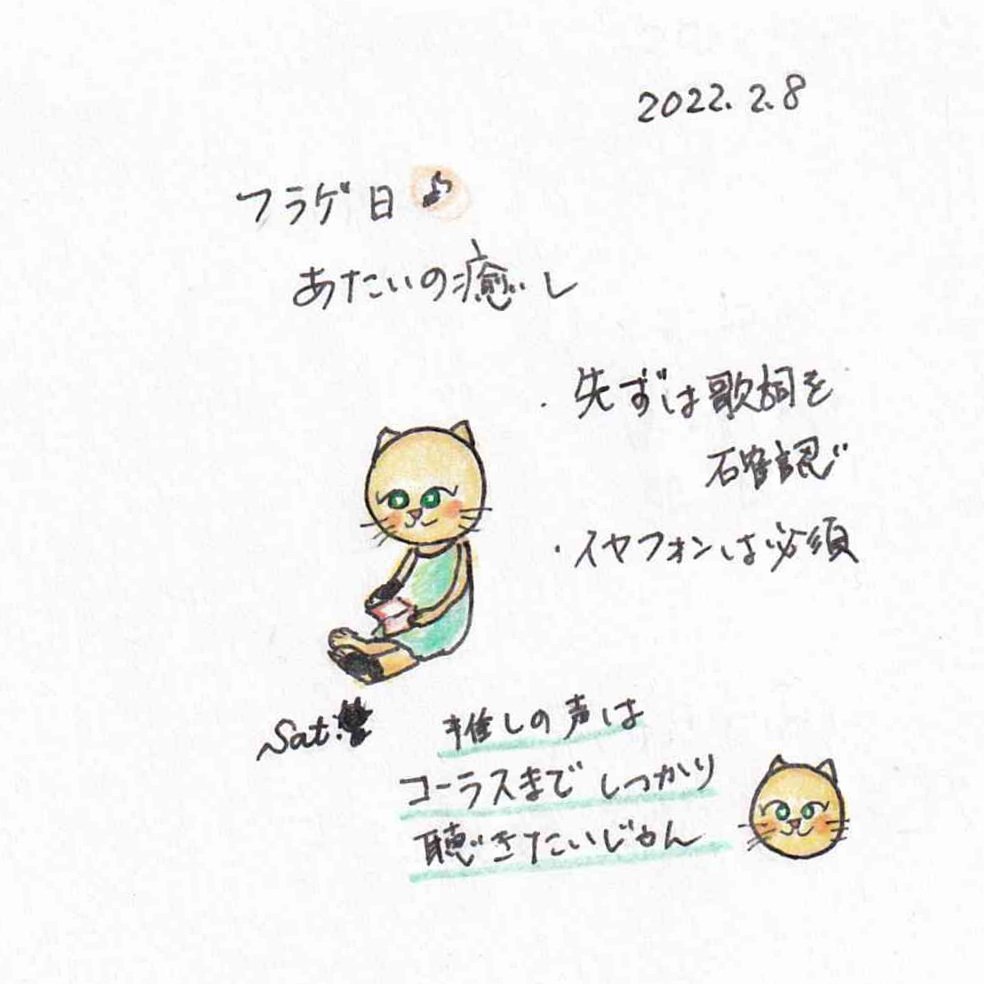 2022.2.8
フラゲ日♪
あたいの癒し
・先ずは歌詞を
確認
・イヤフォンは必須
Sat.
推しの声は
コーラスまでしっかり
聴きたいじゃん